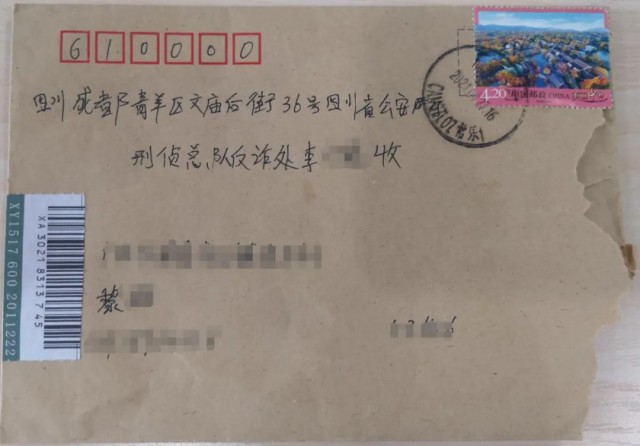 610000
4.20 中国邮政 CHINA
四川成都市青羊区文庙后街36号四川省公安厅
刑侦总队反诈处李 收
XY1517 600 2011222
XA 3021 8313 7 45
黎